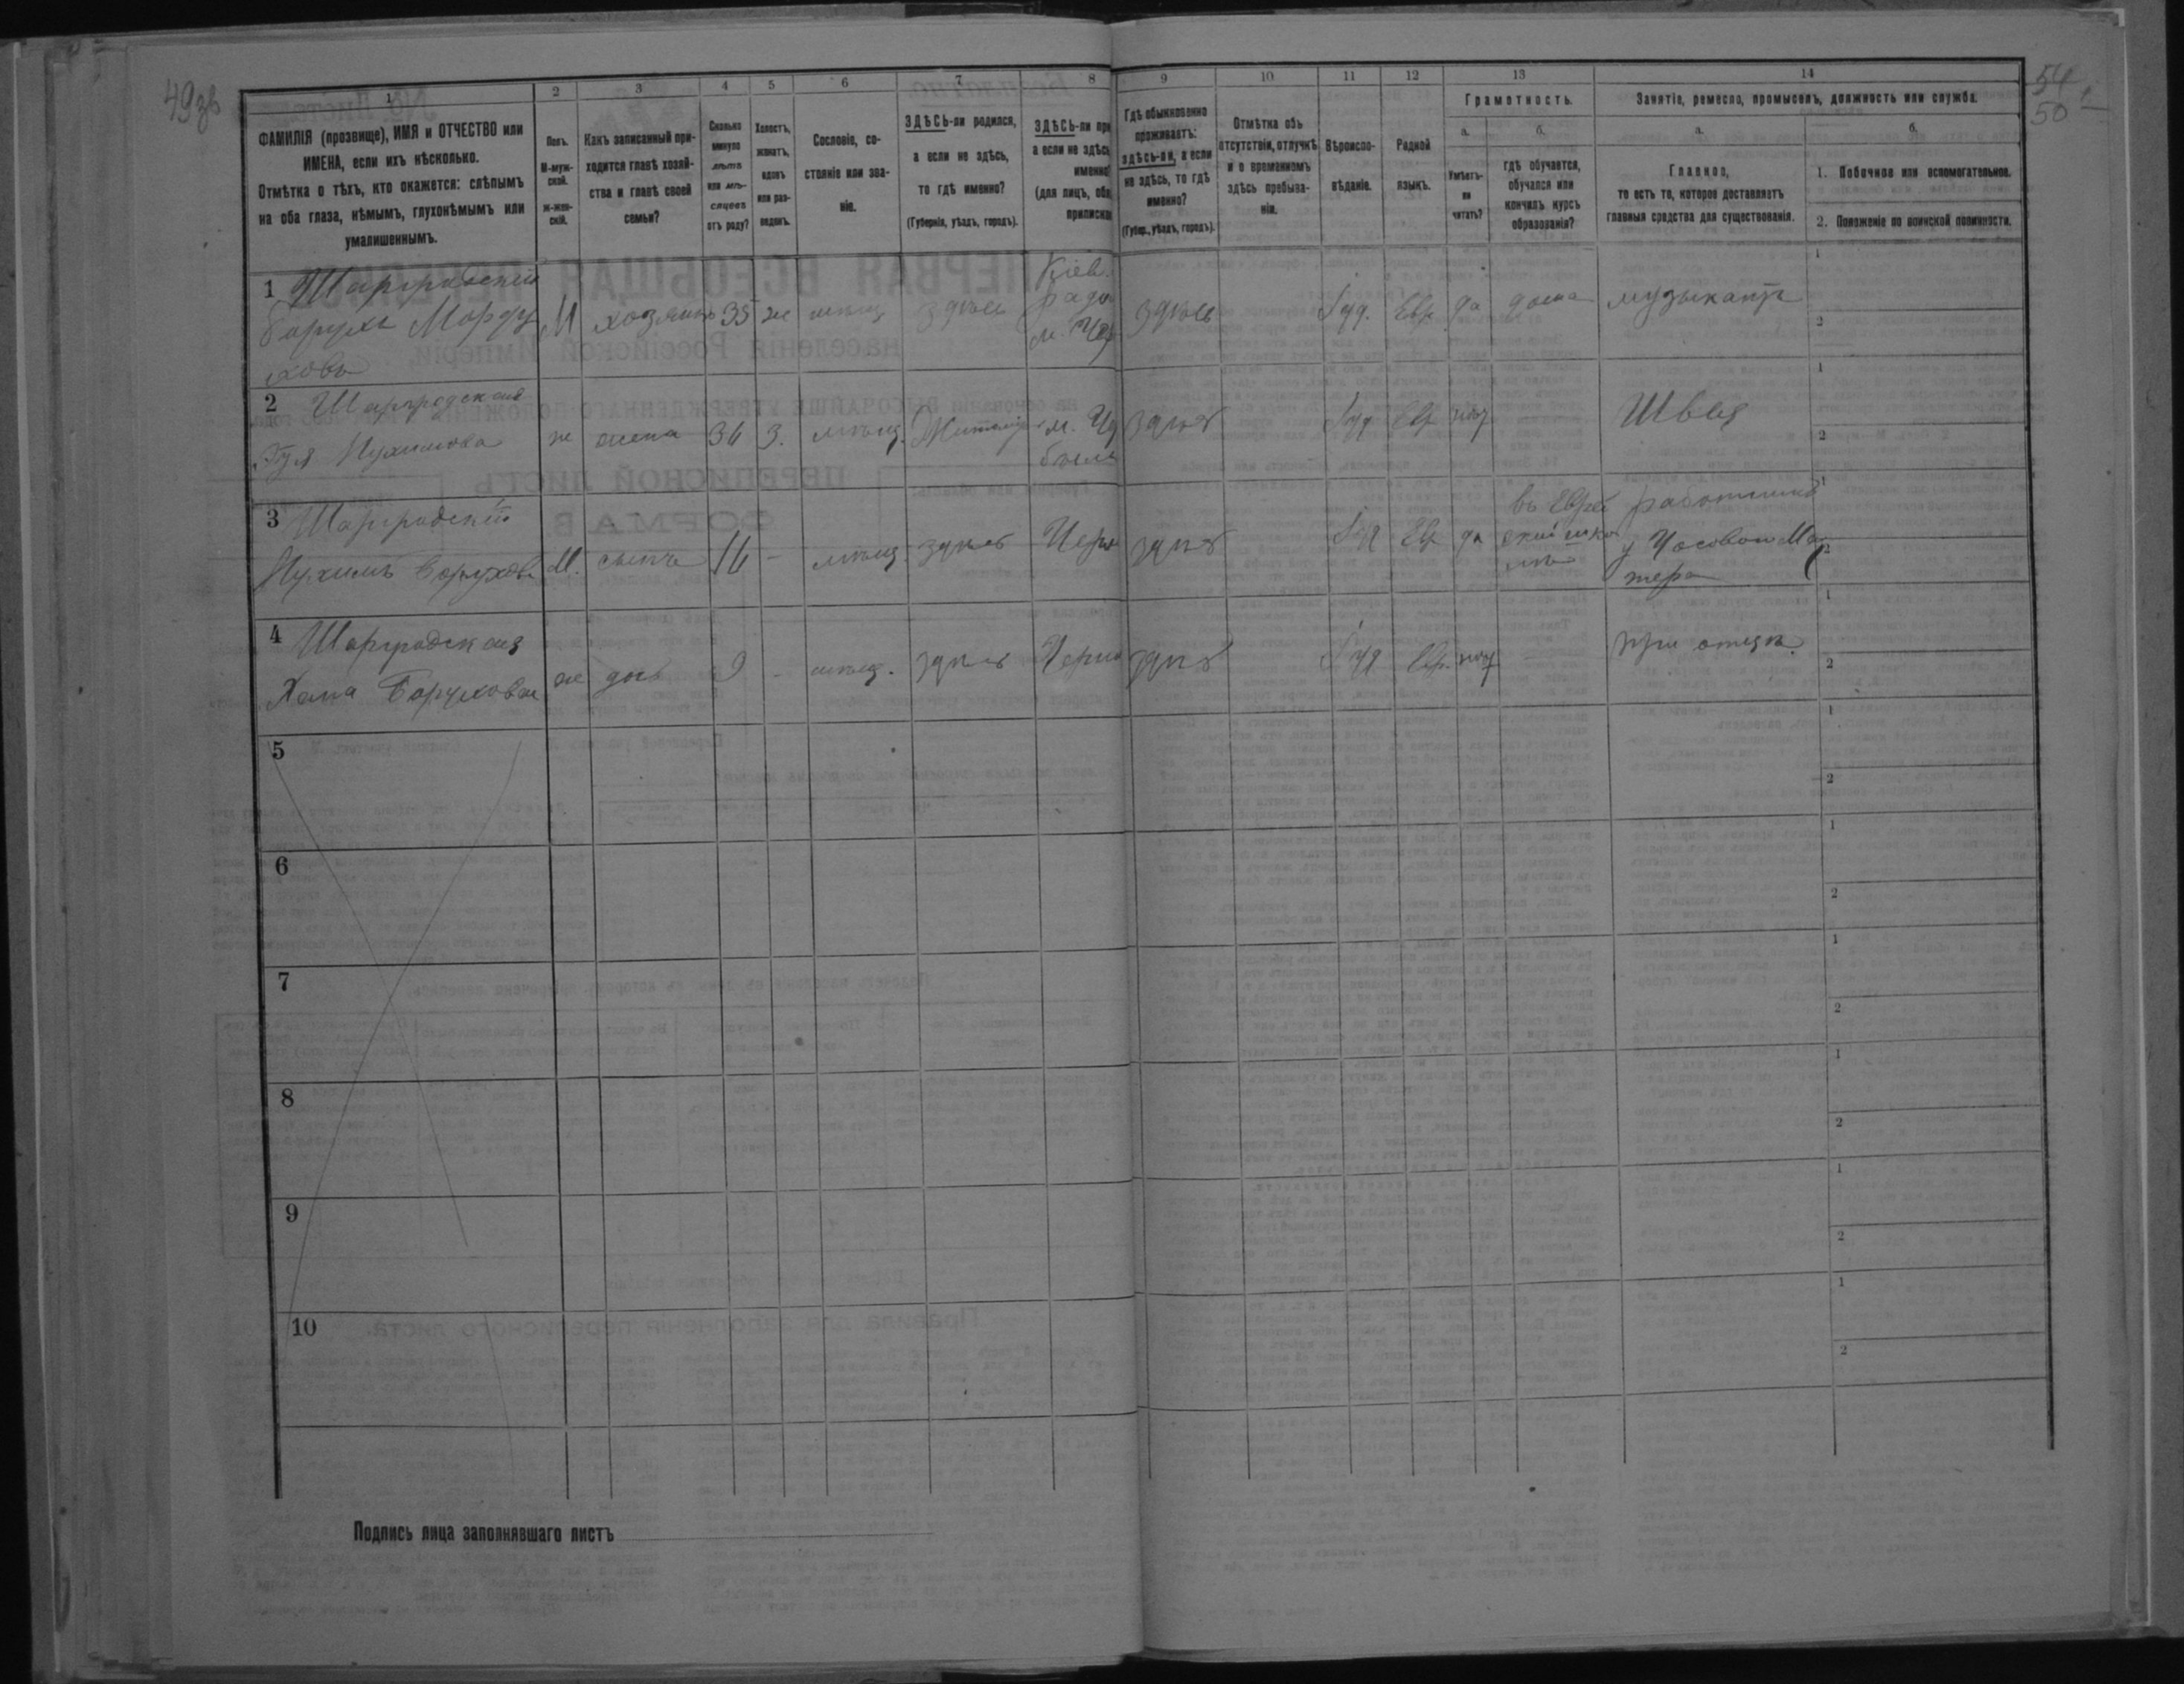 49 зв
54
50
1 2 3 4 5 6 7 8 9 10 11 12 13 14
ФАМИЛІЯ (прозвище), ИМЯ и ОТЧЕСТВО или
ИМЕНА, если ихъ нѣсколько.
Отмѣтка о тѣхъ, кто окажется: слѣпымъ
на оба глаза, нѣмымъ, глухонѣмымъ или
умалишеннымъ.
Полъ.
М-муж-
ской.
Ж-жен-
скій.
Какъ записанный при-
ходится главѣ хозяй-
ства и главѣ своей
семьи?
Сколько
минуло
лѣтъ
или мѣ-
сяцевъ
отъ роду?
Холостъ,
женатъ,
вдовъ
или раз-
веденъ.
Сословіе, со-
стояніе или зва-
ніе.
ЗДѢСЬ-ли родился,
а если не здѣсь,
то гдѣ именно?
(Губернія, уѣздъ, городъ).
ЗДѢСЬ-ли при
а если не здѣсь
именно?
(для лицъ, обя
приписки
Гдѣ обыкновенно
проживаетъ:
здѣсь-ли, а если
не здѣсь, то гдѣ
именно?
(Губер., уѣздъ, городъ).
Отмѣтка объ
отсутствіи, отлучкѣ
и о временномъ
здѣсь пребыва-
ніи.
Вѣроиспо-
вѣданіе.
Родной
языкъ.
Грамотность.
а.
Умѣетъ-
ли
читать?
б.
гдѣ обучается,
обучался или
кончилъ курсъ
образованія?
Занятіе, ремесло, промыселъ, должность или служба.
а.
Главное,
то есть то, которое доставляетъ
главныя средства для существованія.
б.
1. Побочное или вспомогательное.
2. Положеніе по воинской повинности.
1 Шаргродскій
Борухъ Морду
ховъ
М хозяинъ 35 ж мѣщ здѣсь
Кіев.
Радо
м. Чер
здѣсь Іуд. Евр да дома музыкантъ
1
2
2 Шаргродская
Нухимова
ж жена 36 З. мѣщ. Житомір м. Че
быль
здѣсь Іуд Евр нѣт Швея
1
2
3 Шаргродскій
Нухимъ Борухов
М. сынъ 16 - мѣщ. здѣсь Черн здѣсь Іуд Евр да
въ Еврей
ской шко
лѣ
работникъ
у Часовом Мас
тера
1
2
4 Шаргродская
Хана Борухова
ж дочь 9 - мѣщ. здѣсь Черно здѣсь Іуд Евр. нѣт - при отцѣ.
1
2
5
1
2
6
1
2
7
1
2
8
1
2
9
1
2
10
1
2
Подпись лица заполнявшаго листъ